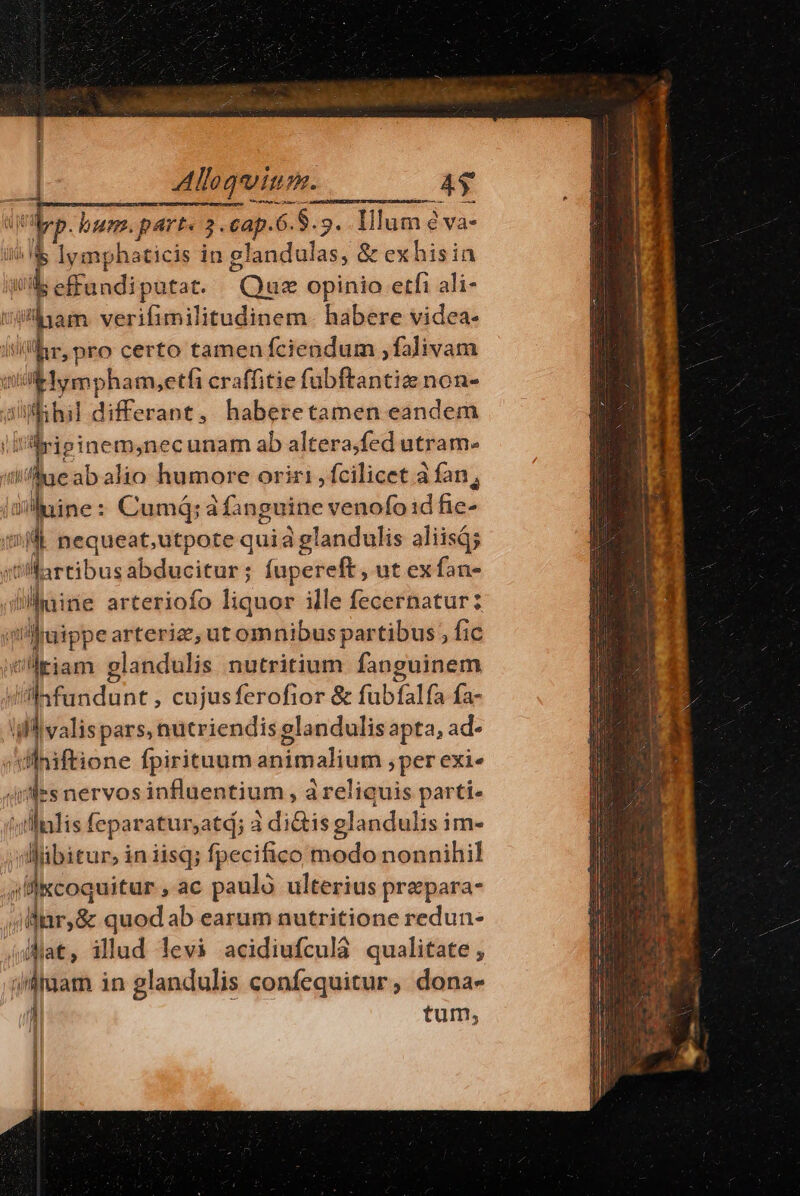 Alloquium. 45
p. hum. part. 3. cap.6.§.9. Illum è va-
lymphaticis in glandulas, & ex his in
effundi putat. Quæ opinio etſi ali-
veriſimilitudinem habere videa-
pro certo tamen ſciendum, ſalivam
lympham, etſi craſſitie ſubſtantiæ non-
differant, habere tamen eandem
nec unam ab altera, ſed utram-
ab alio humore oriri, ſcilicet à ſan,
Cumq; à ſanguine venoſo id fie-
nequeat, utpote qui à glandulis aliisq;
abducitur; ſupereſt, ut ex ſan-
arterioſo liquor ille ſecernatur:
arteriæ, ut omnibus partibus, ſic
glandulis nutritium ſanguinem
cujus ſeroſior & ſubſalſa ſa-
valis pars, nutriendis glandulis apta, ad-
ſpirituum animalium, per exi-
nervos influentium, à reliquis parti-
ſeparatur, atq; à dictis glandulis im-
bitur, in iisq; ſpecifico modo nonnihil
coquitur, ac paulò ulterius præpara-
& quod ab earum nutritione redun-
illud levi acidiuſculâ qualitate,
in glandulis conſequitur, dona-
tum,